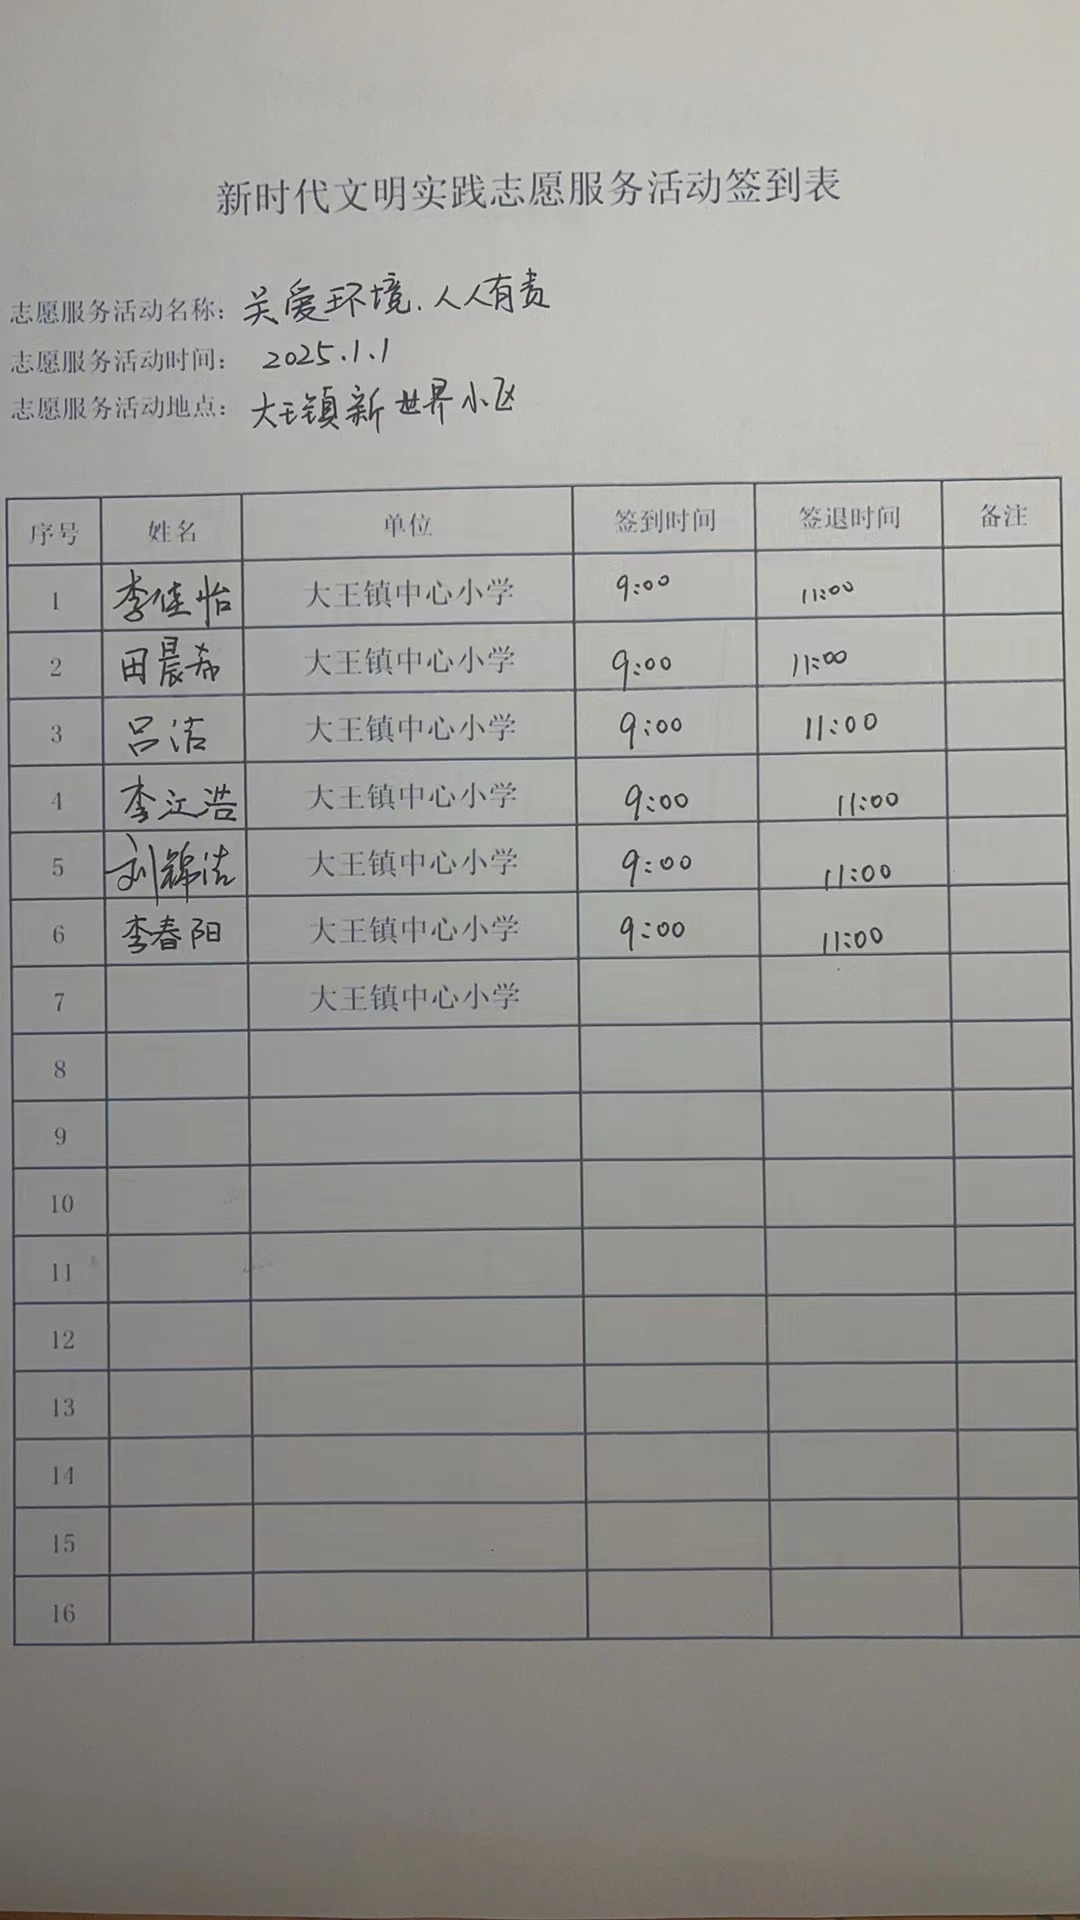 新时代文明实践志愿服务活动签到表
志愿服务活动名称：关爱环境.人人有责
志愿服务活动时间：2025.1.1
志愿服务活动地点：大王镇新世界小区
序号 姓名 单位 签到时间 签退时间 备注
1 李佳怡 大王镇中心小学 9:00 11:00
2 田晨希 大王镇中心小学 9:00 11:00
3 吕洁 大王镇中心小学 9:00 11:00
4 李江浩 大王镇中心小学 9:00 11:00
5 刘锦洁 大王镇中心小学 9:00 11:00
6 李春阳 大王镇中心小学 9:00 11:00
7 大王镇中心小学
8
9
10
11
12
13
14
15
16